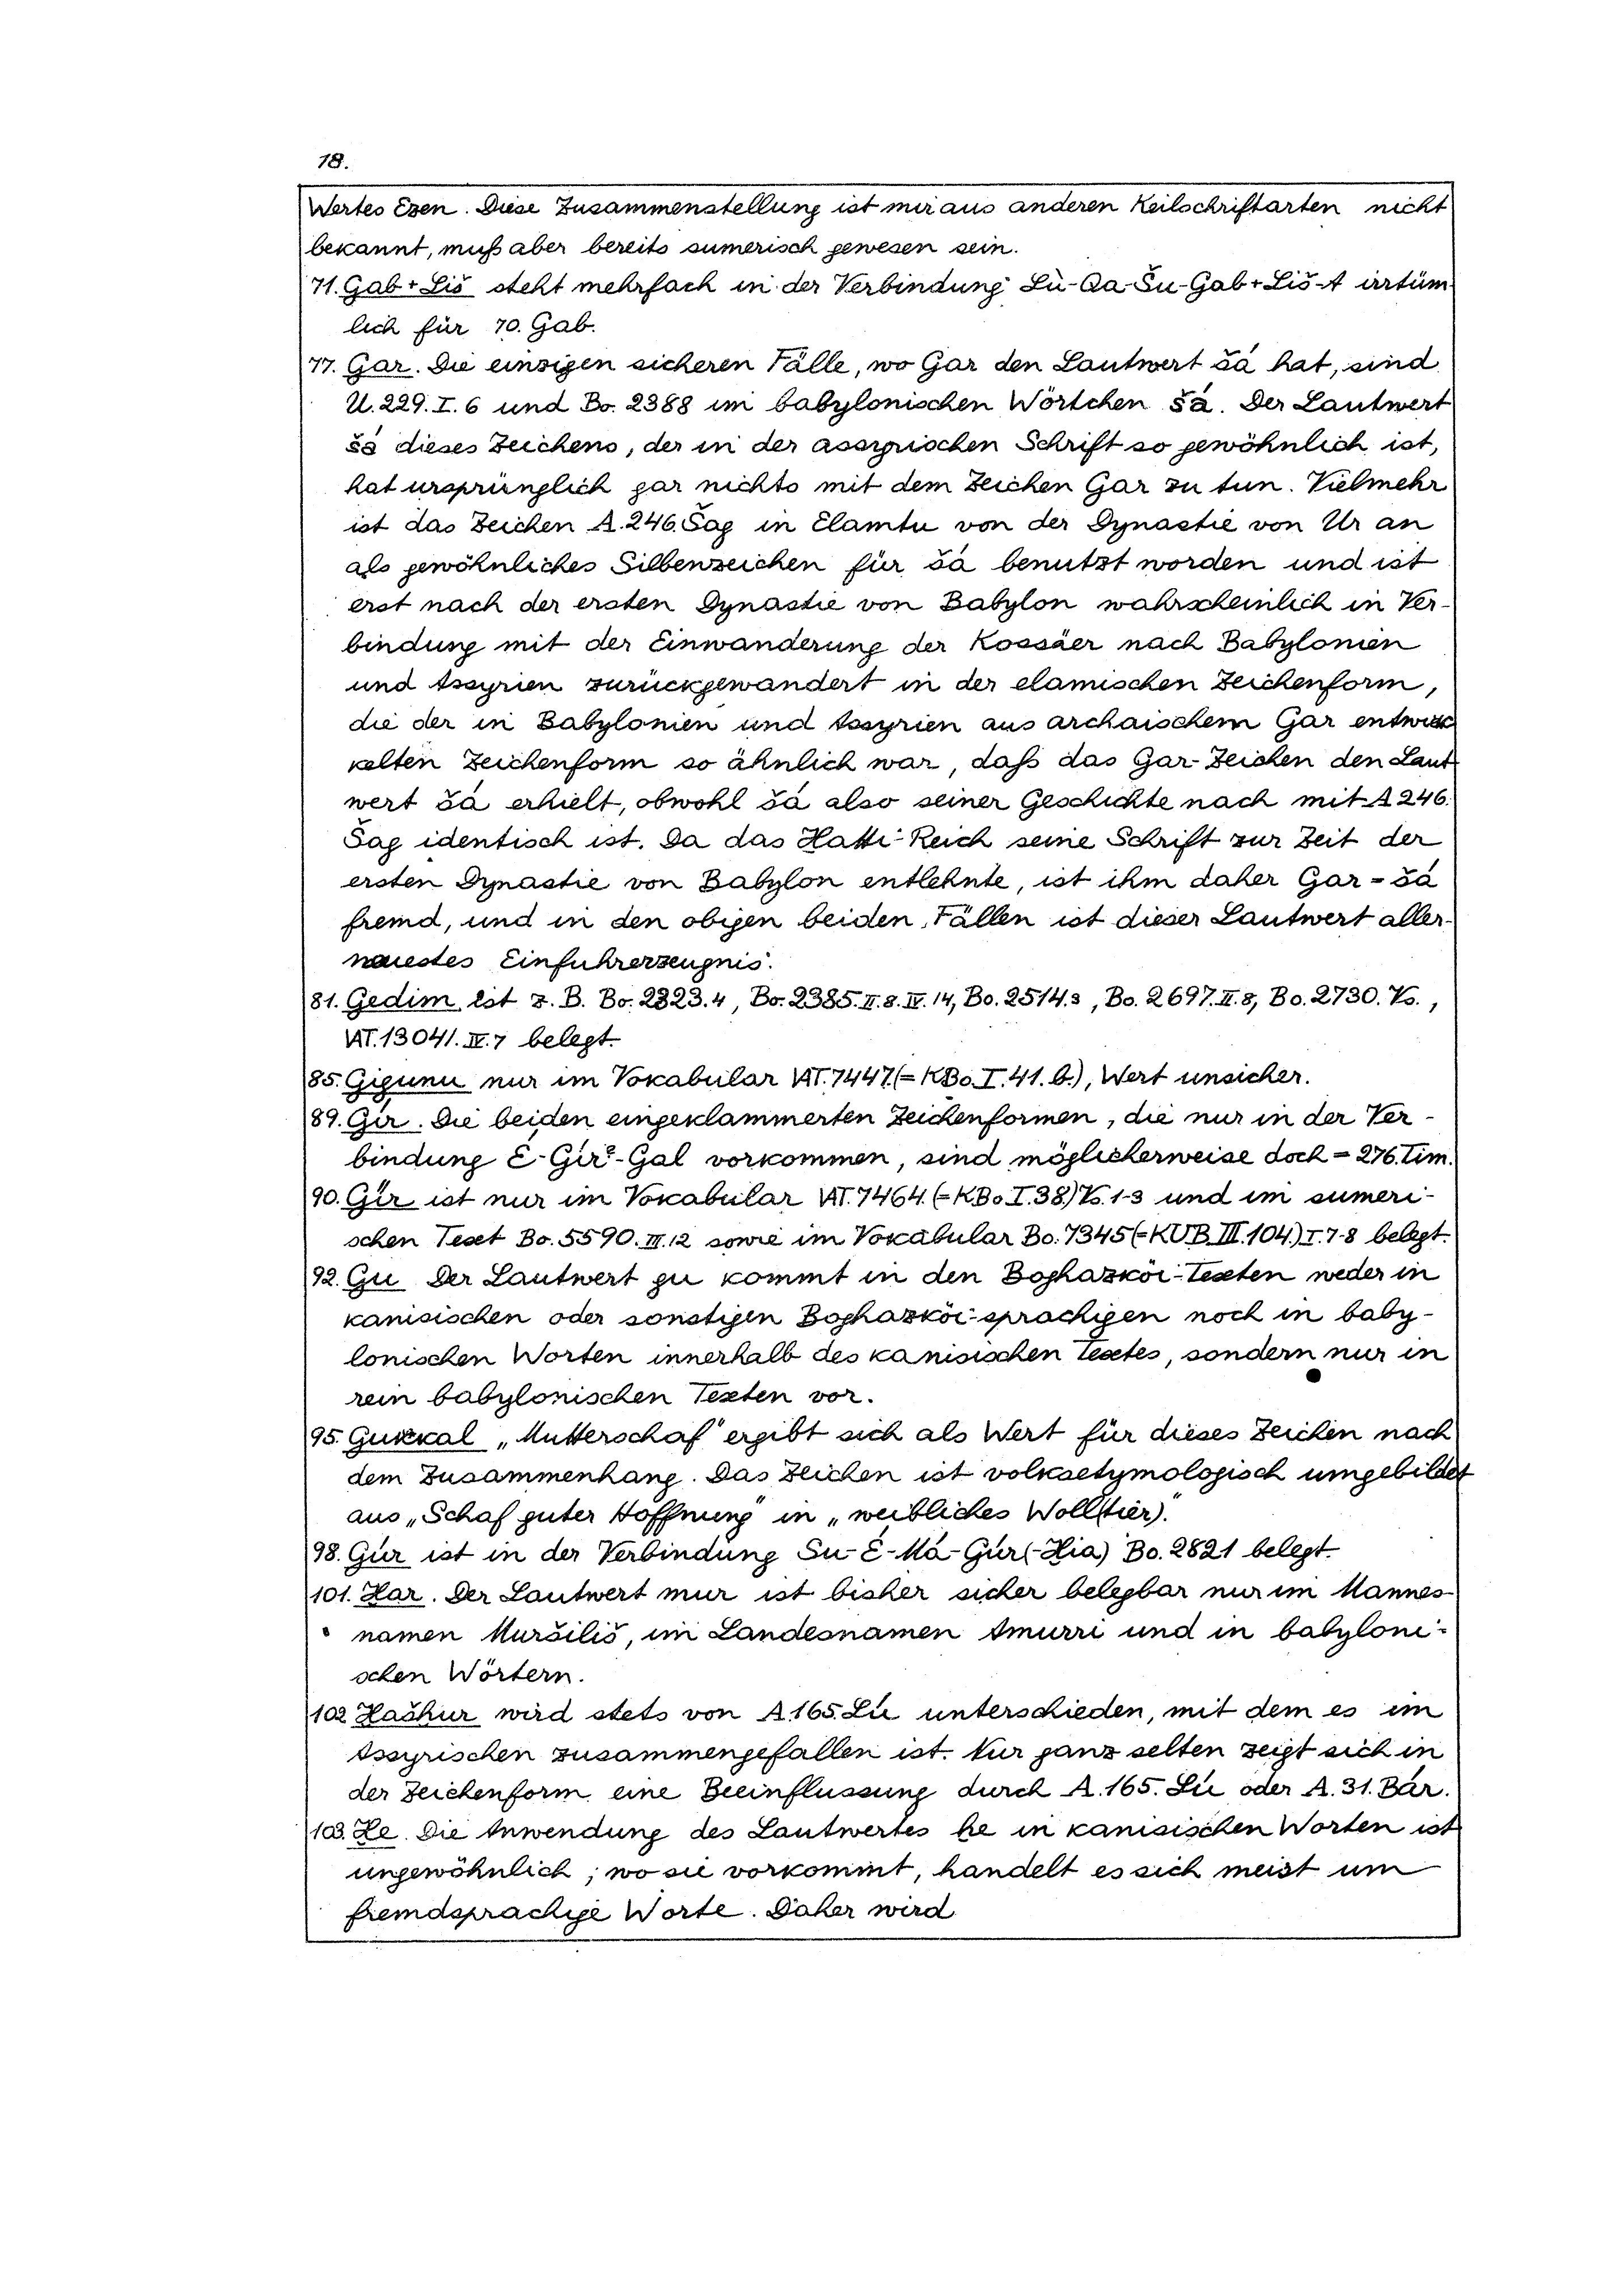 18.
Wertes Ezen. Diese Zusammenstellung ist mir aus anderen Keilschriftarten nicht
bekannt, muß aber bereits sumerisch gewesen sein.
71. Gab+Liš steht mehrfach in der Verbindung Lù-Qa-Šu-Gab+Liš-A irrtüm
lich für 70. Gab.
77. Gar. Die einzigen sicheren Fälle, wo Gar den Lautwert šá hat, sind
U.229.I.6 und Bo. 2388 im babylonischen Wörtchen šá. Der Lautwert
šá dieses Zeichens, der in der assyrischen Schrift so gewöhnlich ist,
hat ursprünglich gar nichts mit dem Zeichen Gar zu tun. Vielmehr
ist das Zeichen A.246.Šag in Elamtu von der Dynastie von Ur an
als gewöhnliches Silbenzeichen für šá benutzt worden und ist
erst nach der ersten Dynastie von Babylon wahrscheinlich in Ver-
bindung mit der Einwanderung der Kossäer nach Babylonien
und Assyrien zurückgewandert in der elamischen Zeichenform,
die der in Babylonien und Assyrien aus archaischem Gar entwick
kelten Zeichenform so ähnlich war, daß das Gar-Zeichen den Laut
wert šá erhielt, obwohl šá also seiner Geschichte nach mit A 246.
Šag identisch ist. Da das Hatti-Reich seine Schrift zur Zeit der
ersten Dynastie von Babylon entlehnte, ist ihm daher Gar = šá
fremd, und in den obigen beiden Fällen ist dieser Lautwert aller-
neuestes Einfuhrerzeugnis.
81. Gedim ist z. B. Bo. 2323.4, Bo. 2385.II.8.IV.14, Bo. 2514.3, Bo. 2697.II.8, Bo. 2730. Vs.,
VAT.13041.IV.7 belegt.
85. Gigunu nur im Vokabular VAT.7447.(=KBo.I.41.b.), Wert unsicher.
89. Gir. Die beiden eingeklammerten Zeichenformen, die nur in der Ver-
bindung É-Gir?-Gal vorkommen, sind möglicherweise doch = 276. Tim.
90. Gír ist nur im Vokabular VAT.7464.(=KBo.I.38.)Vs.1-3 und im sumeri-
schen Text Bo. 5590.III.12 sowie im Vokabular Bo. 7345(=KUB.III.104.)I.7-8 belegt.
92. Gu Der Lautwert gu kommt in den Boghazköi-Texten weder in
kanisischen oder sonstigen Boghazköi-sprachigen noch in baby-
lonischen Worten innerhalb des kanisischen Textes, sondern nur in
rein babylonischen Texten vor.
95. Gukkal „Mutterschaf“ ergibt sich als Wert für dieses Zeichen nach
dem Zusammenhang. Das Zeichen ist volksetymologisch umgebildet
aus „Schaf guter Hoffnung“ in „weibliches Woll(tier).“
98. Gúr ist in der Verbindung Su-É-Má-Gúr(-Hia) Bo. 2821 belegt.
101. Har. Der Lautwert mur ist bisher sicher belegbar nur im Mannes
namen Muršiliš, im Landesnamen Amurri und in babyloni-
schen Wörtern.
102. Hašhur wird stets von A.165. Lú unterschieden, mit dem es im
Assyrischen zusammengefallen ist. Nur ganz selten zeigt sich in
der Zeichenform eine Beeinflussung durch A.165. Lú oder A.31. Bár.
103. He. Die Anwendung des Lautwertes he in kanisischen Worten ist
ungewöhnlich; wo sie vorkommt, handelt es sich meist um
fremdsprachige Worte. Daher wird